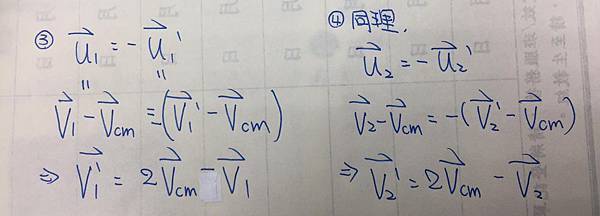 ③ $\vec{u}_1 = -\vec{u}_1'$
〃 〃
$\vec{V}_1 - \vec{V}_{cm} = -(\vec{V}_1' - \vec{V}_{cm})$
⇒ $\vec{V}_1' = 2\vec{V}_{cm} - \vec{V}_1$
④ 同理,
$\vec{u}_2 = -\vec{u}_2'$
$\vec{V}_2 - \vec{V}_{cm} = -(\vec{V}_2' - \vec{V}_{cm})$
⇒ $\vec{V}_2' = 2\vec{V}_{cm} - \vec{V}_2$